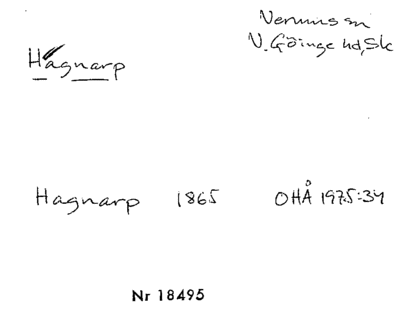 Verums sn
Hagnarp
V. Göinge hd, Sk
Hagnarp 1865 OHÅ 1975:34
Nr 18495